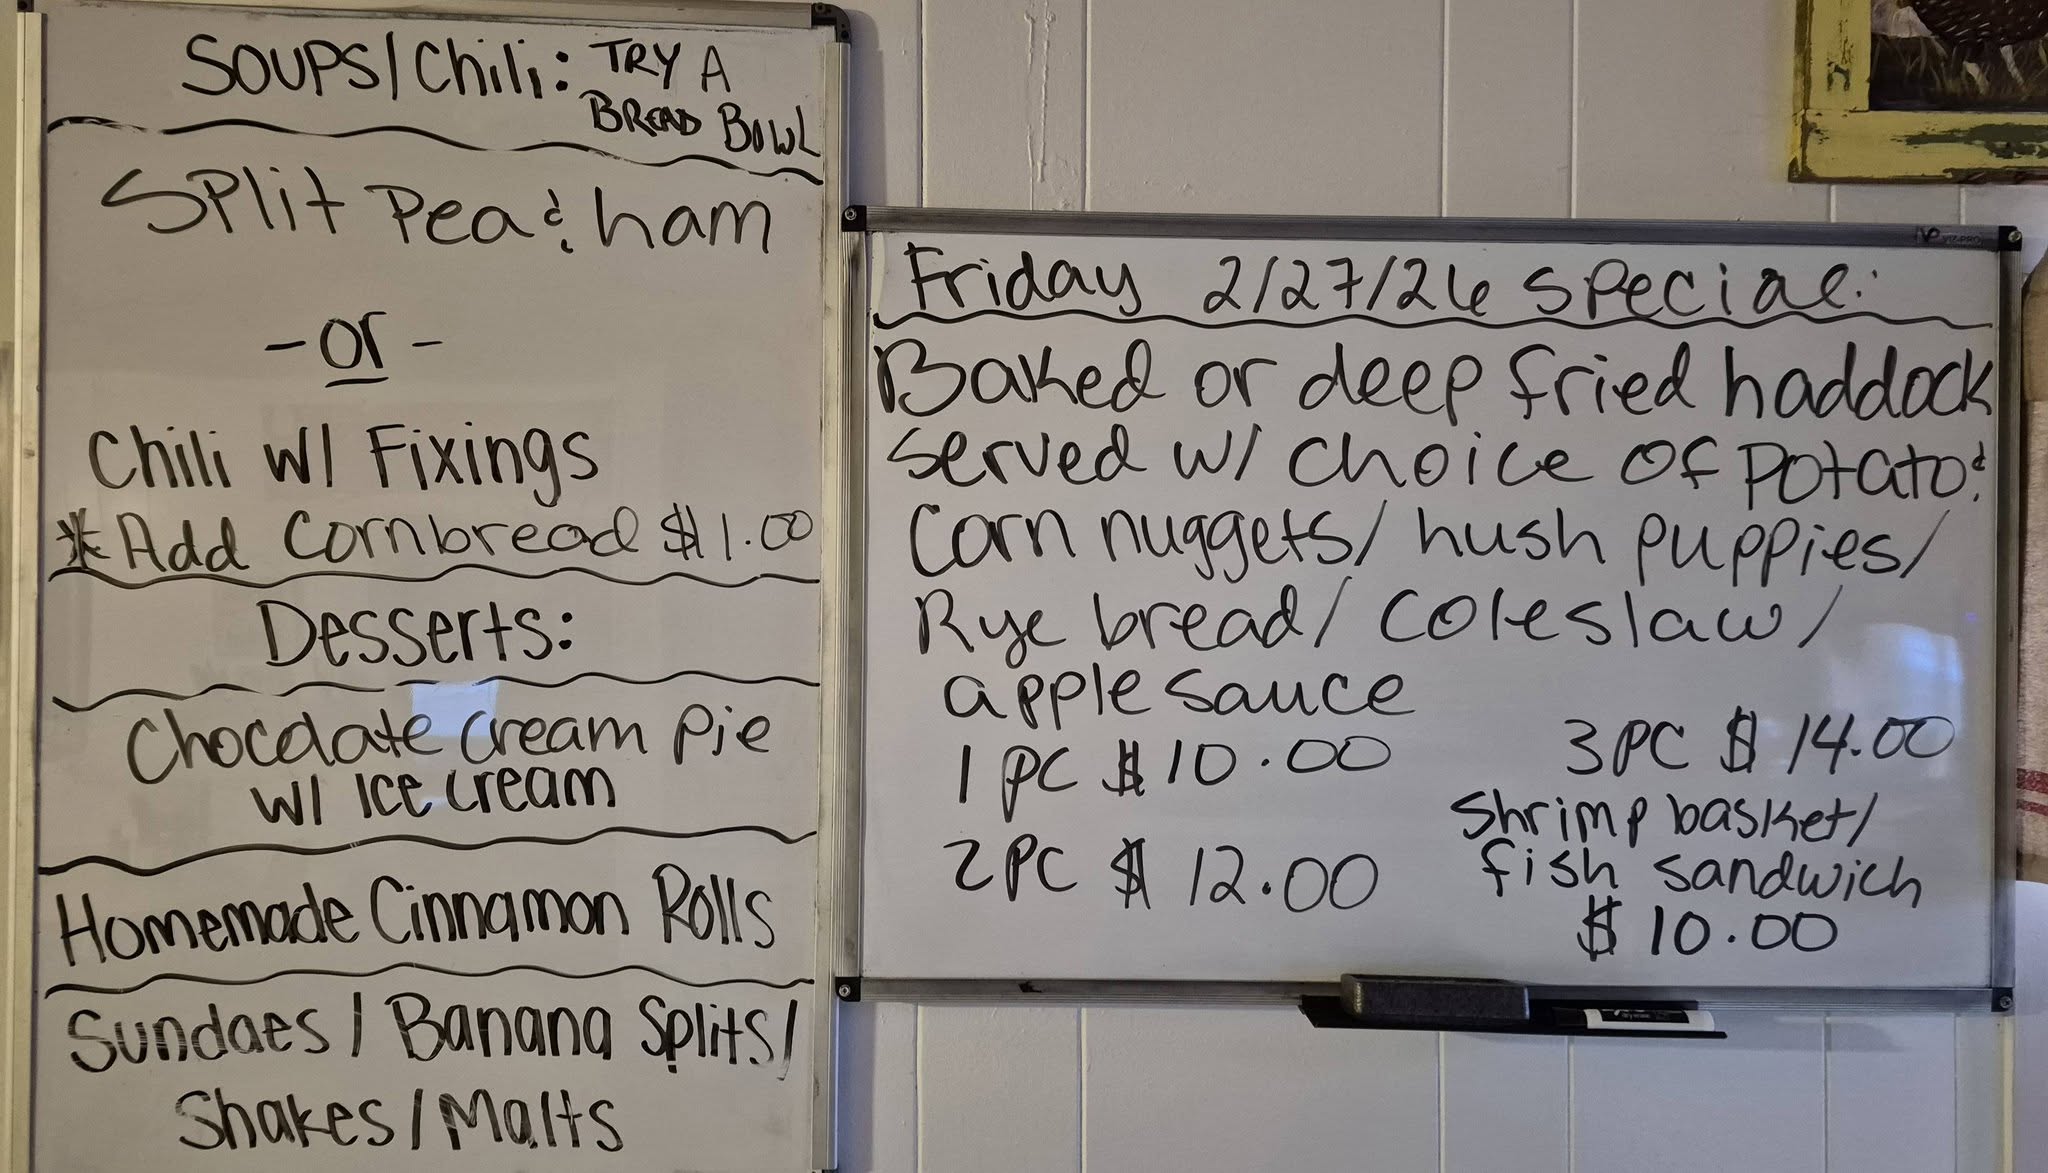 SOUPS/Chili: TRY A
BREAD BOWL
Split Pea & ham
-or-
Chili w/ Fixings
*Add Cornbread $1.00
Desserts:
Chocolate Cream Pie
w/ Ice cream
Homemade Cinnamon Rolls
Sundaes / Banana Splits/
Shakes / Malts
Friday 2/27/26 special:
Baked or deep fried haddock
served w/ choice of potato &
Corn nuggets/ hush puppies/
Rye bread/ coleslaw/
applesauce
1 PC $10.00
2 PC $12.00
3 PC $14.00
Shrimp basket/
fish sandwich
$10.00